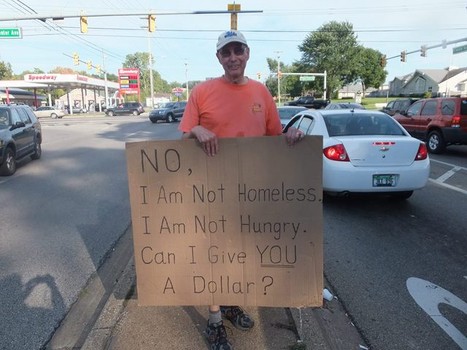 Speedway
NO,
I Am Not Homeless.
I Am Not Hungry.
Can I Give YOU
A Dollar?